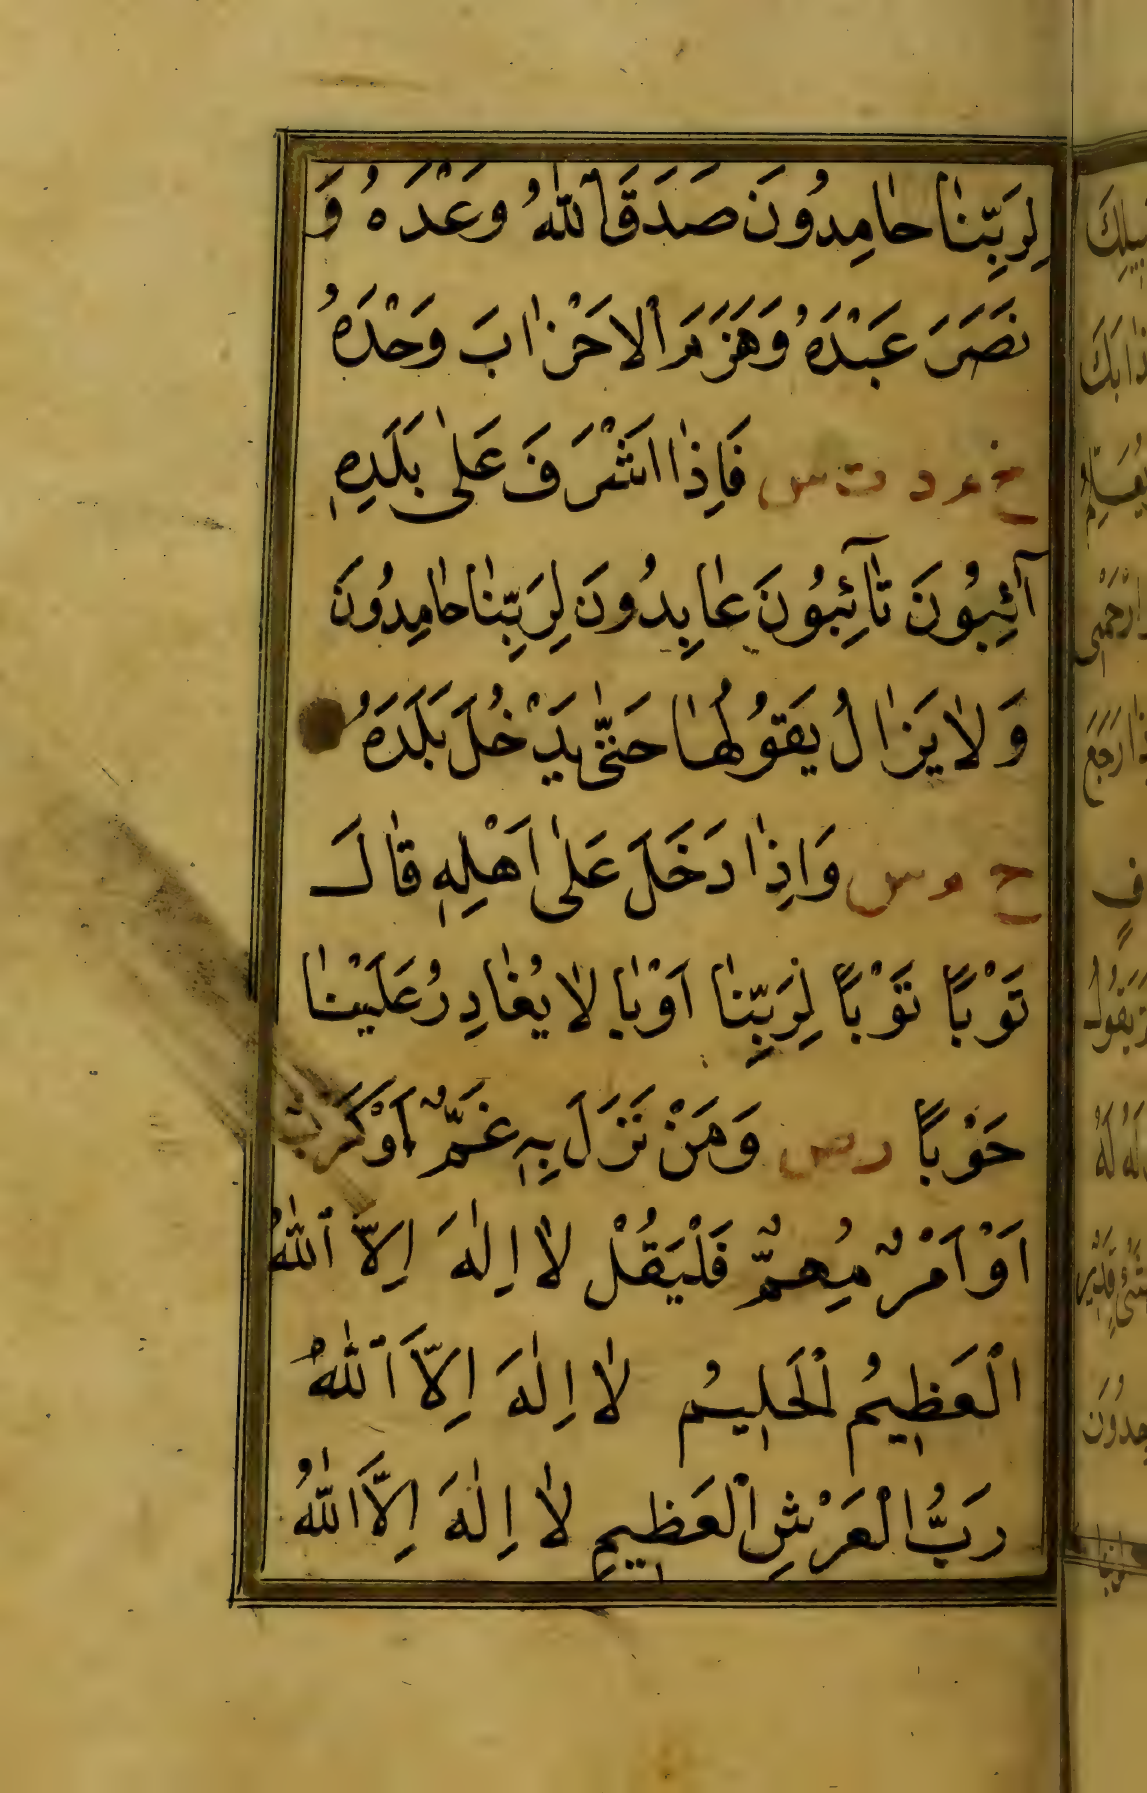 لِرَبِّنَا حَامِدُونَ صَدَقَ اللّٰهُ وَعْدَهُ وَ
نَصَرَ عَبْدَهُ وَهَزَمَ الْاَحْزَابَ وَحْدَهُ
خ م د ت س فَاِذَا اَشْرَفَ عَلٰى بَلَدِهِ
آئِبُونَ تَآئِبُونَ عَابِدُونَ لِرَبِّنَا حَامِدُونَ
وَلَا يَزَالُ يَقُولُهَا حَتّٰى يَدْخُلَ بَلَدَهُ
خ م س وَاِذَا دَخَلَ عَلٰى اَهْلِهِ قَالَ
تَوْبًا تَوْبًا لِرَبِّنَا اَوْبًا لَا يُغَادِرُ عَلَيْنَا
حَوْبًا ر س وَمَنْ نَزَلَ بِهِ غَمٌّ اَوْ كَرْبٌ
اَوْ اَمْرٌ مُهِمٌّ فَلْيَقُلْ لَا اِلٰهَ اِلَّا اللّٰهُ
الْعَظِيمُ الْحَلِيمُ لَا اِلٰهَ اِلَّا اللّٰهُ
رَبُّ الْعَرْشِ الْعَظِيمِ لَا اِلٰهَ اِلَّا اللّٰهُ